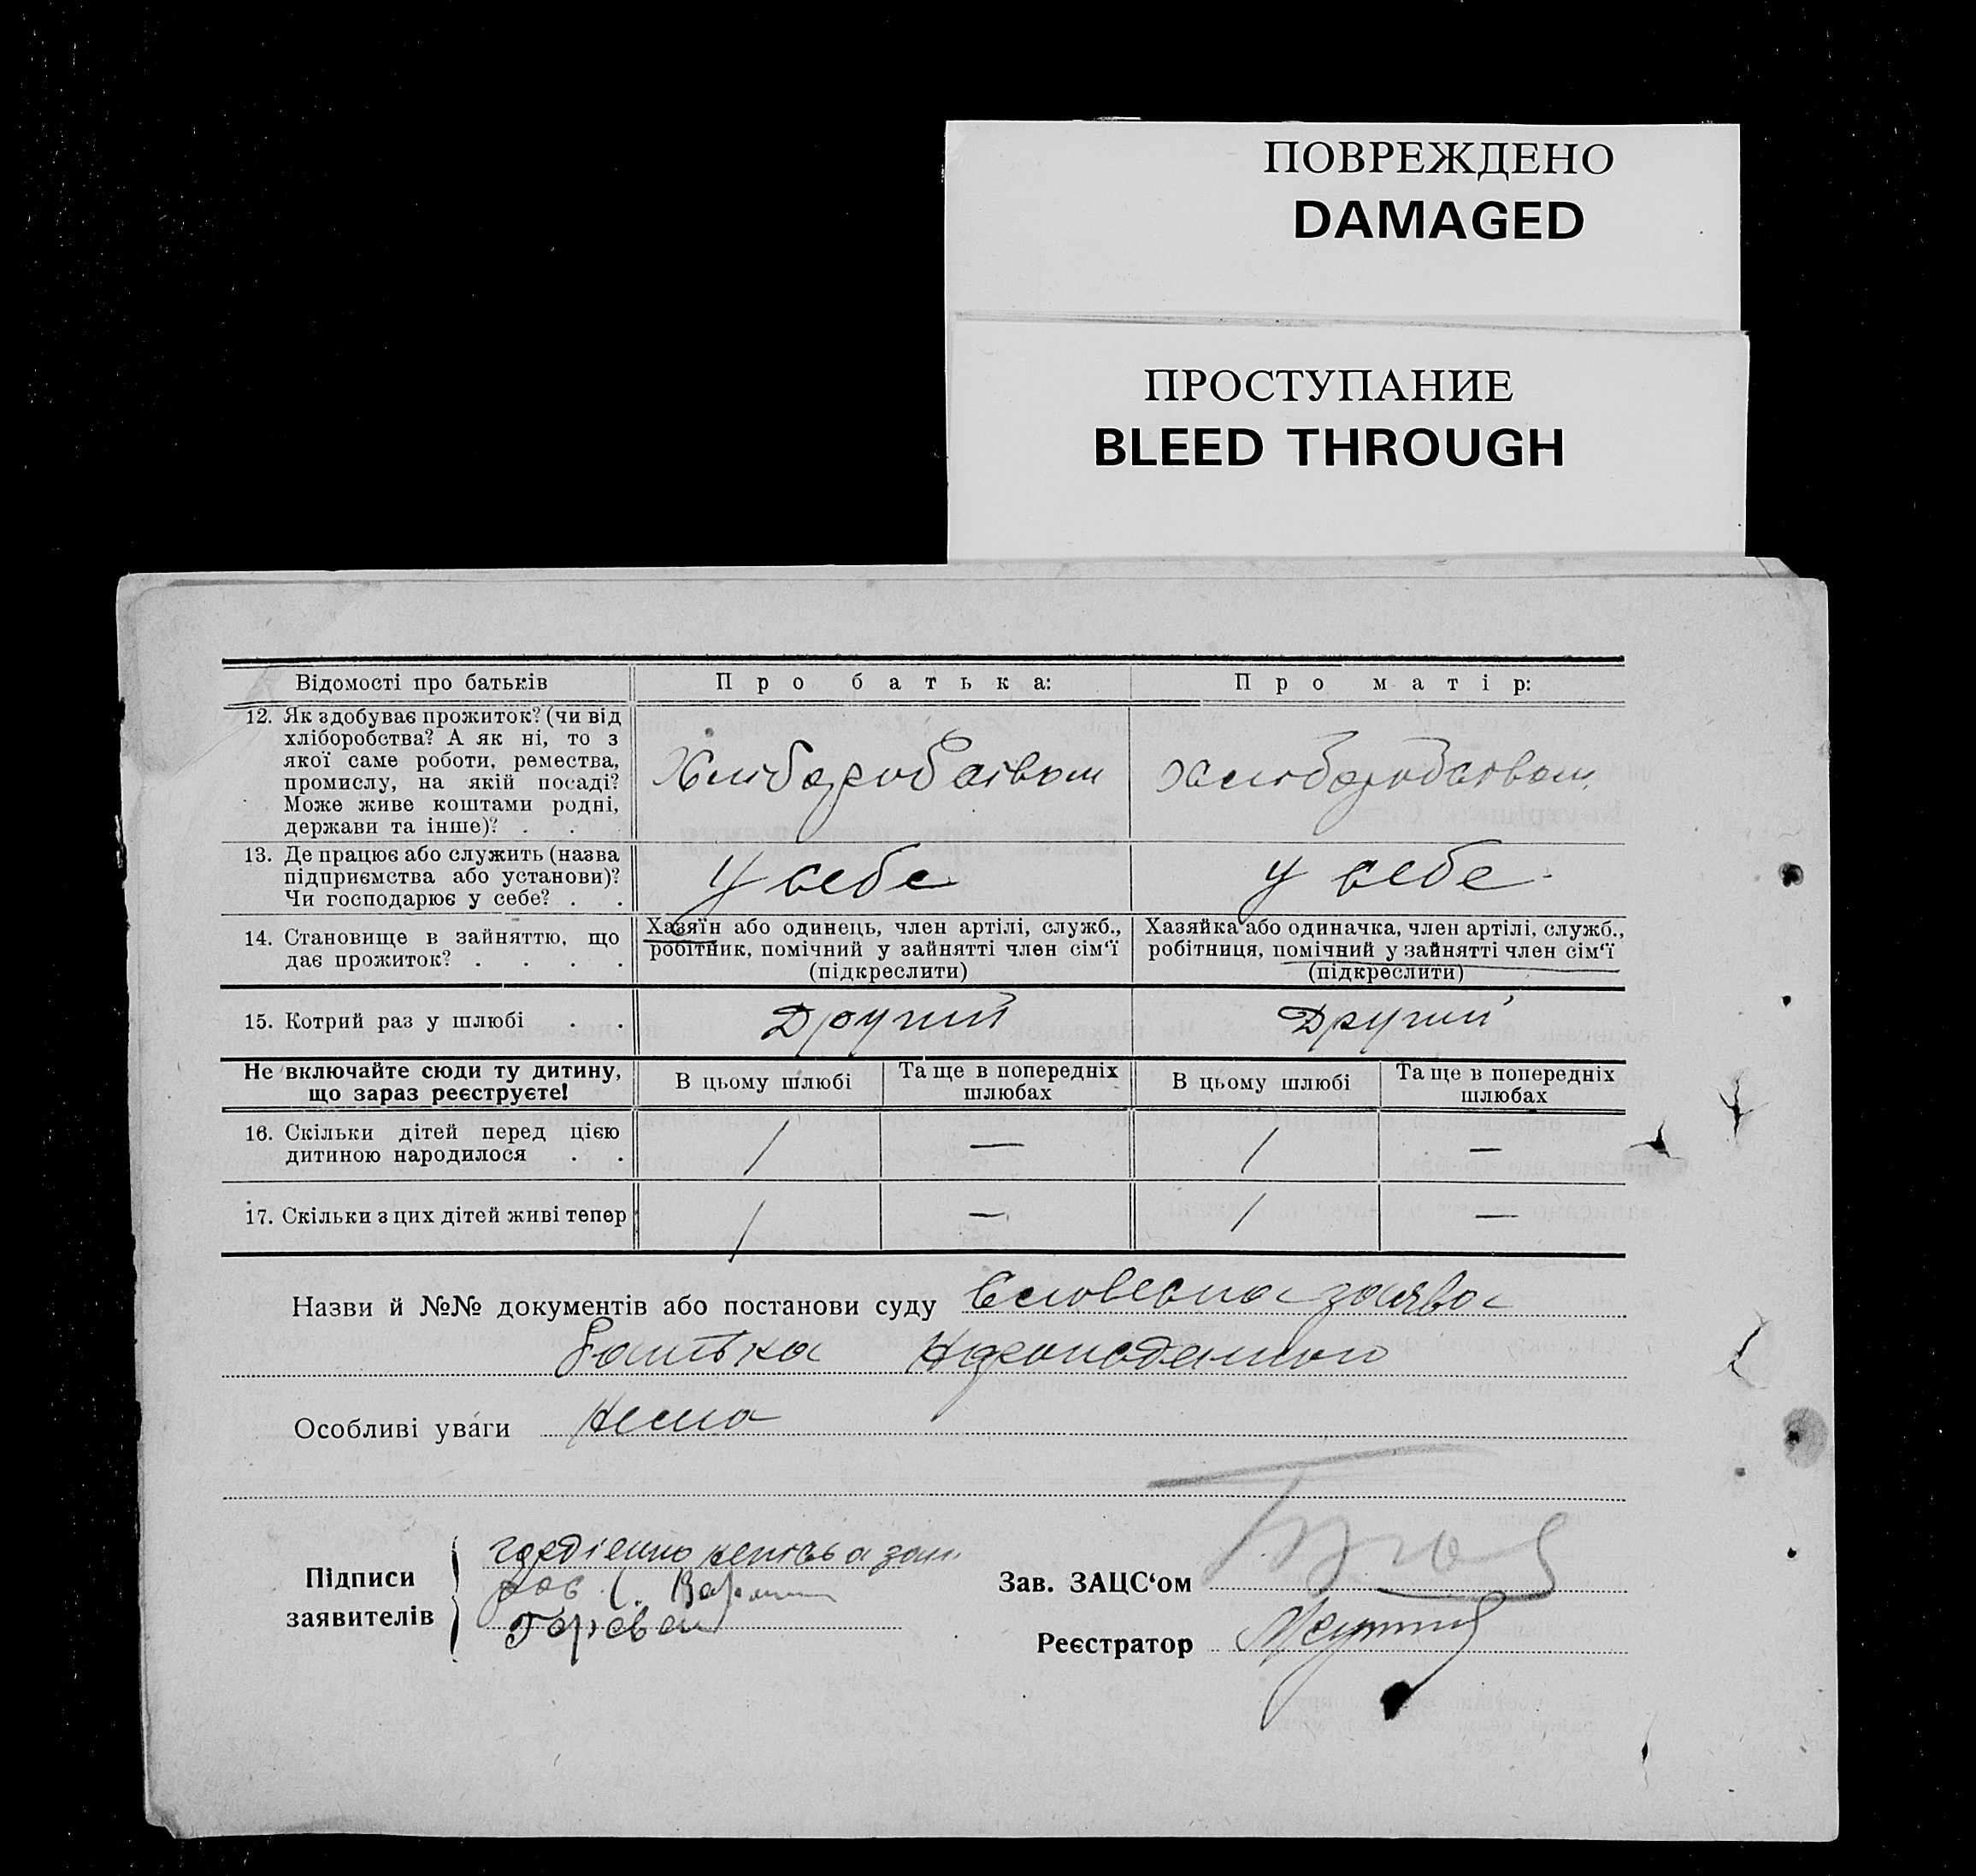 ПОВРЕЖДЕНО
DAMAGED
ПРОСТУПАНИЕ
BLEED THROUGH
Відомості про батьків
Про батька:
Про матір:
12. Як здобуває прожиток? (чи від
хліборобства? А як ні, то з
якої саме роботи, ремества,
промислу, на якій посаді?
Може живе коштами родні,
держави та інше)? . .
Хлиборобством
Хлиборобством
13. Де працює або служить (назва
підприємства або установи)?
Чи господарює у себе? . .
У себе
У себе
14. Становище в зайняттю, що
дає прожиток? . . . .
Хазяїн або одинець, член артілі, служб.,
робітник, помічний у зайнятті член сім'ї
(підкреслити)
Хазяйка або одиначка, член артілі, служб.,
робітниця, помічний у зайнятті член сім'ї
(підкреслити)
15. Котрий раз у шлюбі . .
Другий
Другий
Не включайте сюди ту дитину,
що зараз реєструєте!
В цьому шлюбі
Та ще в попередніх
шлюбах
В цьому шлюбі
Та ще в попередніх
шлюбах
16. Скільки дітей перед цією
дитиною народилося . .
1 — 1 —
17. Скільки з цих дітей живі тепер
1 — 1 —
Назви й №№ документів або постанови суду Словесна заява
батька
Особливі уваги Нема
Підписи
заявителів
Зав. ЗАЦС'ом
Реєстратор